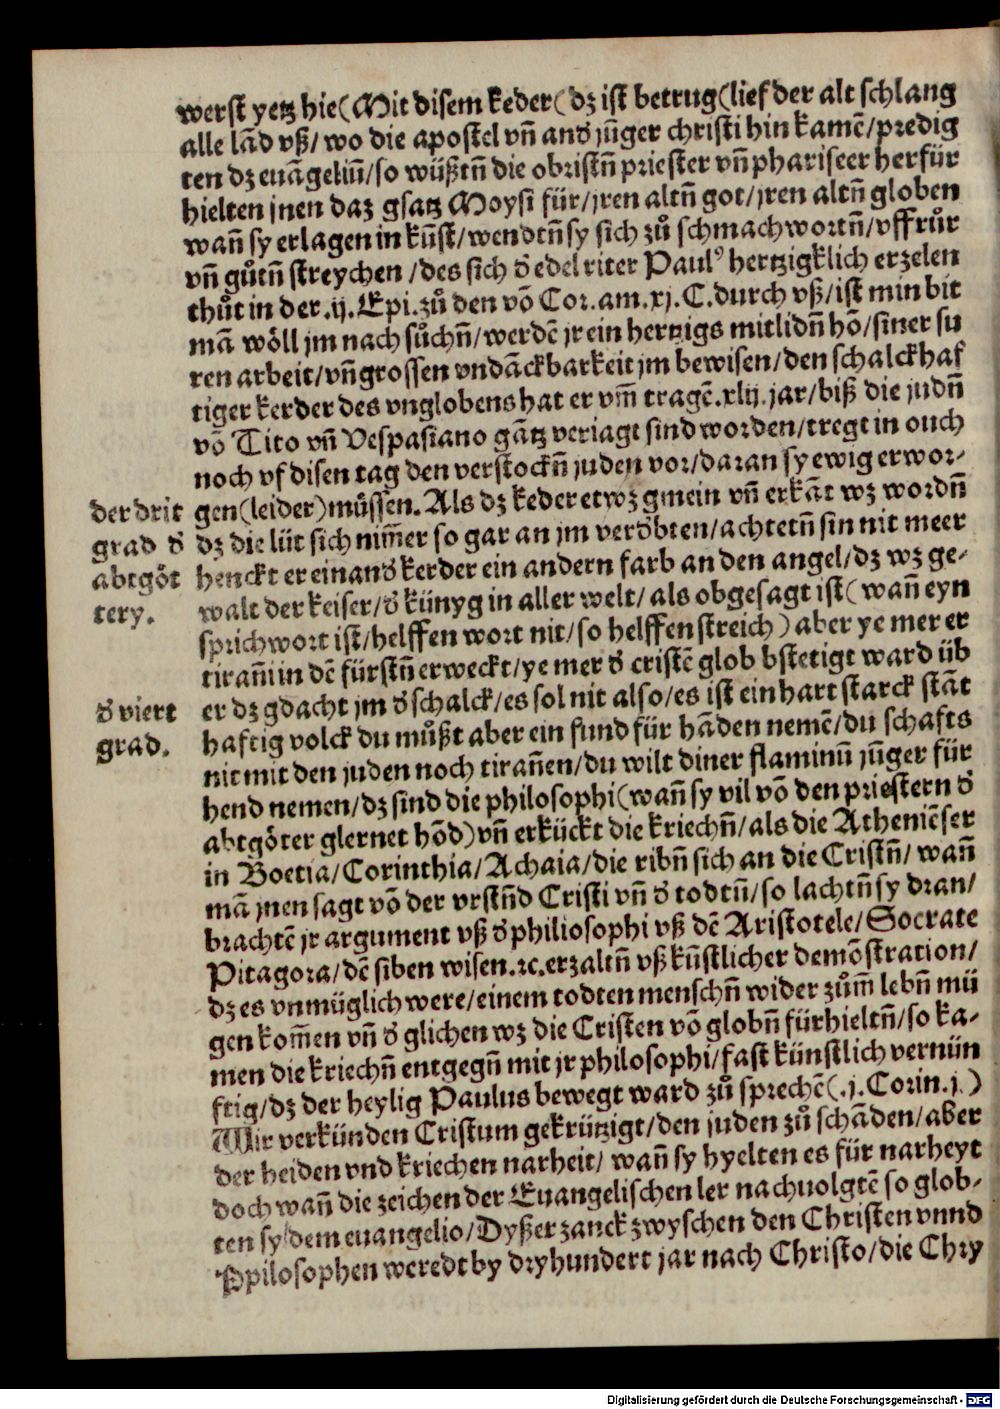 werst yetz hie(Mit disem keder(dz ist betrug(lief der alt schlang
alle lād vß/wo die apostel vñ anđ jūger christi hin kamē/predig
ten dz euāgeliū/so wüßtñ die obristñ priester vñ phariseer herfür
hielten jnen daz gsatz Moysi für/jren altñ got/jren altñ globen
wañ sy erlagen in kūst/wendtñ sy sich zů schmachwortñ/vffrůr
vñ gůtñ streychen/des sich đ edel riter Paulꝰ hertzigklich erzelen
thůt in der .ij. Epi. zů den vō Cor. am .xj. C. durch vß/ist min bit
mā wöll jm nach sůchñ/werdē jr ein hertzigs mitlidñ hō/siner su
ren arbeit/vñ grossen vndāckbarkeit jm bewisen/den schalckhaf
tiger kerder des vnglobens hat er vm̄ tragē .xlij. jar/biß die judñ
vō Tito vñ Vespasiano gātz veriagt sind worden/tregt in ouch
noch vf disen tag den verstockñ juden vor/daran sy ewig erwor-
der drit
grad đ
abtgöt
tery.
gen(leider)müssen. Als dz keder etwz gmein vñ erkāt wz wordñ
dz die lüt sich nim̄er so gar an jm verđbten/achtetñ sin nit meer
henckt er ein anđ kerder ein andern farb an den angel/dz wz ge-
walt der keiser/đ künyg in aller welt/als obgesagt ist(wañ eyn
sprichwort ist/helffen wort nit/so helffen streich) aber ye mer er
tirañi in dē fürstñ erweckt/ye mer đ cristē glob bstetigt ward üb
đ viert
grad.
er dz gdacht jm đ schalck/es sol nit also/es ist ein hart starck stāt
hafftig volck du můßt aber ein fund für hāden nemē/du schafts
nit mit den juden noch tirañen/du wilt diner flaminū jūger für
hend nemen/dz sind die philosophi(wañ sy vil vō den priestern đ
abtgöter glernet hōd)vñ erkückt die kriechñ/als die Atheniēser
in Boetia/Corinthia/Achaia/die ribñ sich an die Cristñ/wañ
mā jnen sagt vō der vrstñd Cristi vñ đ todtñ/so lachtñ sy dran/
brachtē jr argument vß đ philiosophi vß dē Aristotele/Socrate
Pitagora/dē siben wisen .ꝛc. erzaltñ vß kūstlicher demōstration/
dz es vnmüglich were/einem todten menschñ wider zům̄ lebñ mü
gen kom̄en vñ đ glichen wz die Cristen vō globñ fürhieltñ/so ka-
men die kriechñ entgegñ mit jr philosophi/fast künstlich vernün
ftig/dz der heylig Paulus bewegt ward zů sprechē(.j. Corin. j.)
Wir verkünden Cristum gekrützigt/den juden zů schāden/aber
der heiden vnd kriechen narheit/wañ sy hyelten es für narheyt
doch wañ die zeichen der Euangelischen ler nachuolgtē so glob-
ten sy dem euangelio/Dyßer zanck zwyschen den Christen vnnd
Philosophen weredt by dryhundert jar nach Christo/die Chry
Digitalisierung gefördert durch die Deutsche Forschungsgemeinschaft - DFG